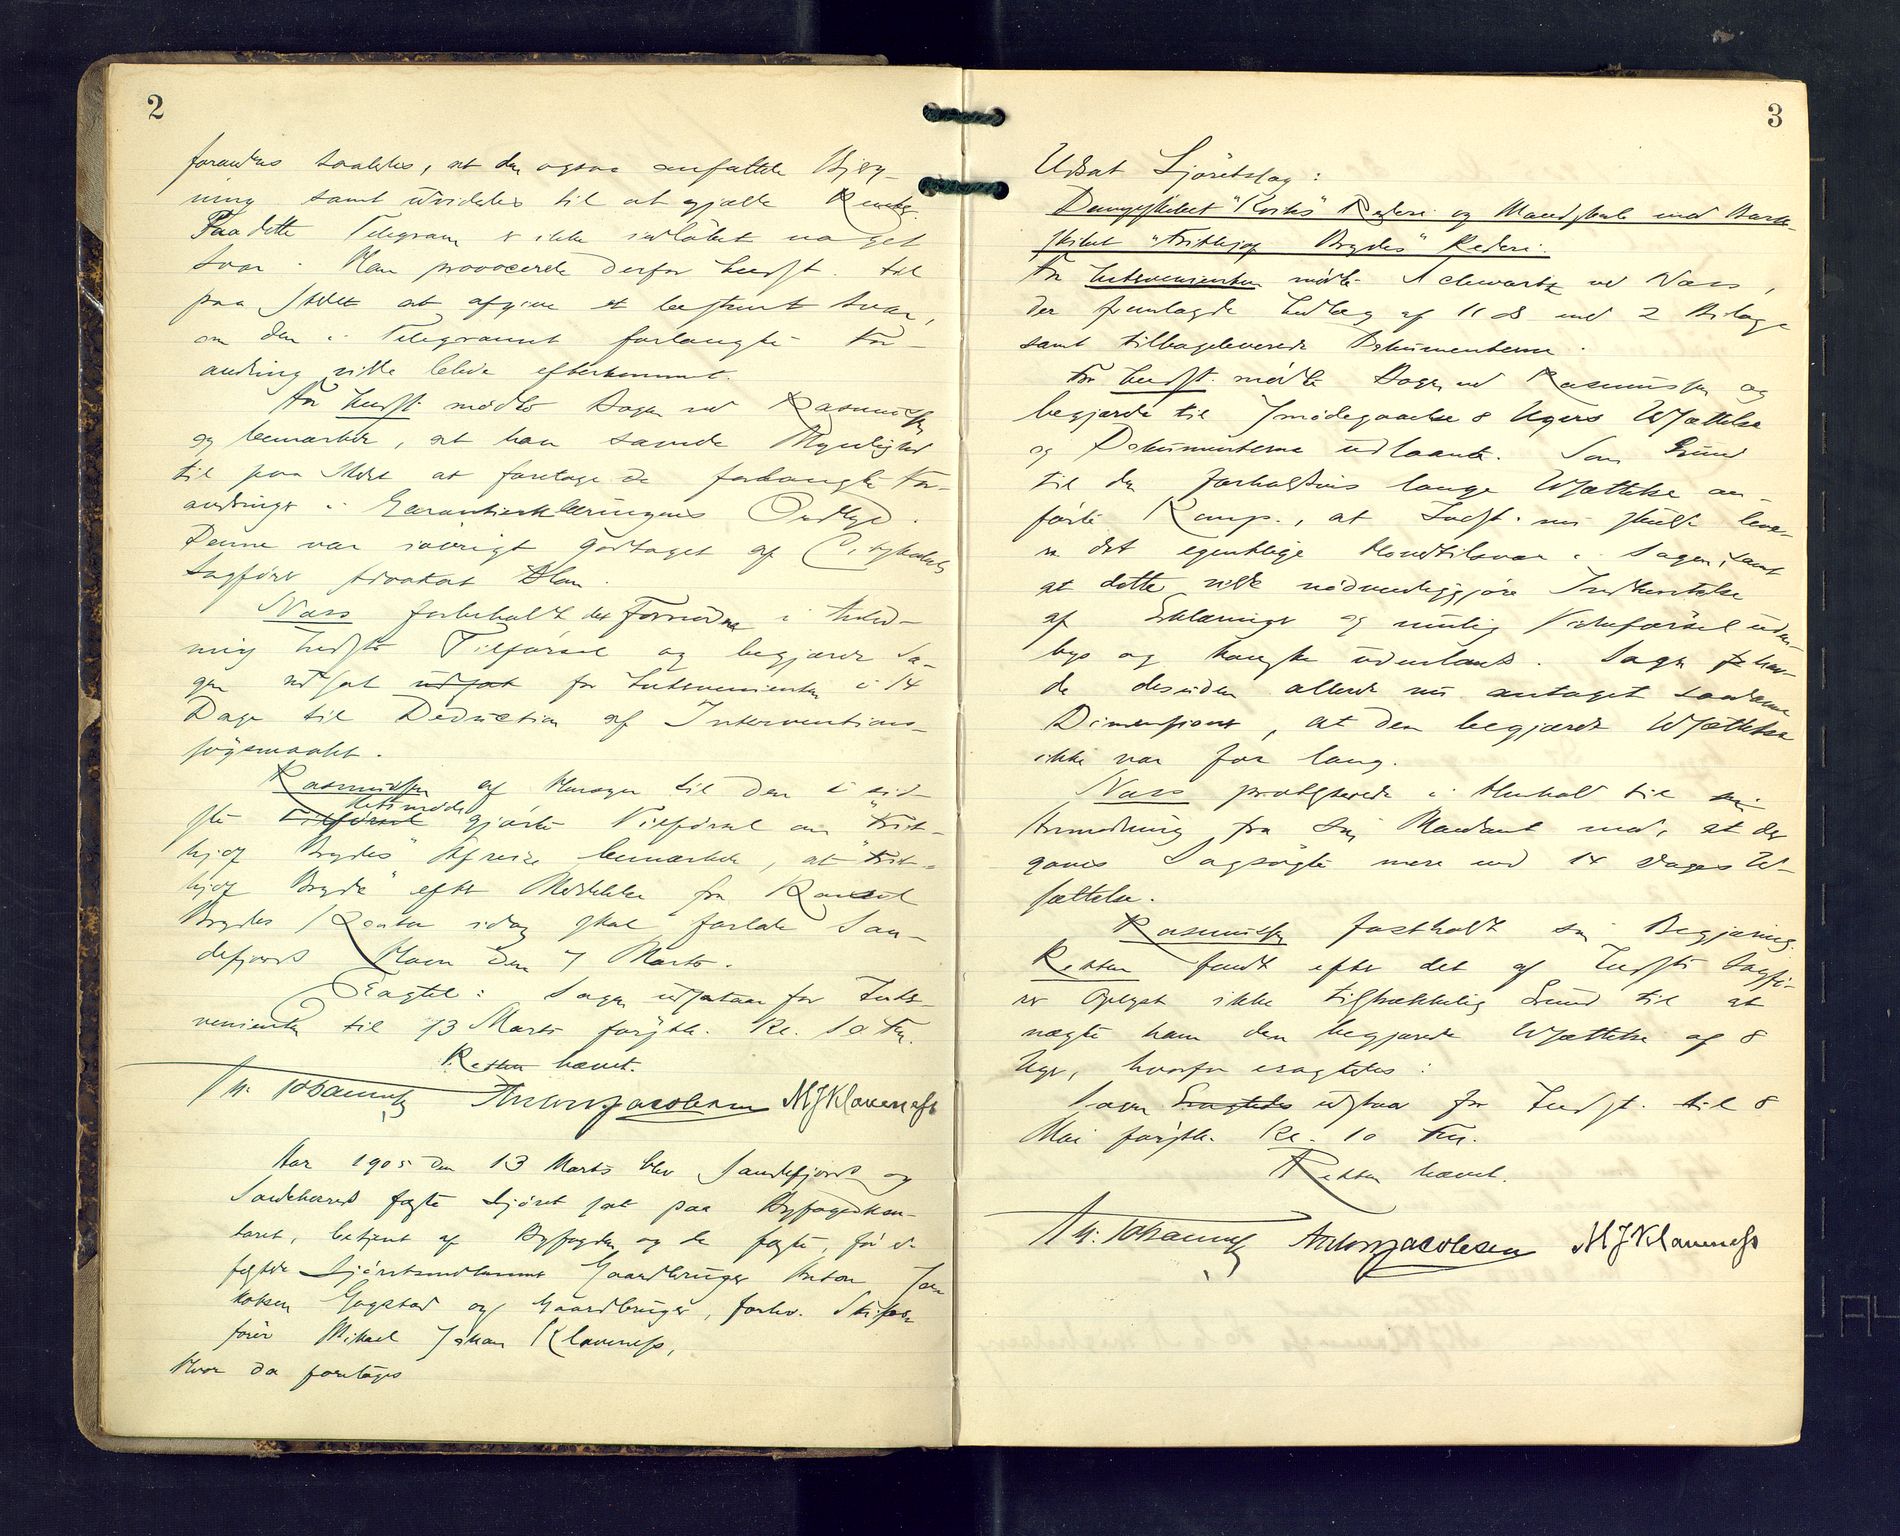 2
forandres saaledes, at den ogsaa omfattede Bjerg-
ning samt udvidedes til at gjælde Renter.
Paa dette Telegram er ikke indløbet noget
Svar. Han provocerede derfor Indst. til
paa Stedet at afgive et bestemt Svar,
om den i Telegrammet forlangte For-
andring vilde blive efterkommet.
For Indst. mødte Bogen ved Rasmussen
og bemærkede, at han savnede Myndighed
til paa Stedet at foretage de forlangte For-
andringer i Garantierklæringens Ordlyd.
Denne var iøvrigt godtaget af
Sagfører Advokat
Nass forbeholdt det Fornødne i Anled-
ning Indsts Tilførsel og begjærede Sa-
gen udsat udsat for Intervenienten i 14
Dage til Deduction af Interventions-
søgsmaalet.
Rasmussen af Hensyn til den i sid-
ste Tilførsel Retsmøde gjorte Tilførsel om "Frit-
hjof Brydes" Afreise bemærkede, at "Frit-
hjof Bryde" efter Meddelelse fra Konsul
Brydes Kontor idag skal forlade San-
defjords Havn den 7 Marts.
Eragtet: Sagen udsattes for Inter-
venienten til 13 Marts førstk. Kl. 10 Fm.
Retten hævet.
Johannessen Anton Jacobsen M J Klaveness
Aar 1905 den 13 Marts blev Sandefjords og
Sandeherreds faste Sjøret sat paa Byfogedkon-
toret, betjent af Byfogden og de faste, før ed-
fæstede Sjøretsmedlemmer Gaardbruger Anton Ja-
kobsen Gogstad og Gaardbruger, forhv. Skibs-
fører Mikael Johan Klaveness,
Hvor da foretoges
3
Udsat Sjøretssag:
Dampskibet "Korks" Rederi og Mandskab mod Bark-
skibet "Frithjof Brydes" Rederi.
For Intervenienten mødte Schwartz ved Nass,
der fremlagde Indlæg af 11 ds med 2 Bilage
samt tilbageleverede Dokumenterne.
For Indst. mødte Bogen ved Rasmussen og
begjærede til Imødegaaelse 8 Ugers Udsættelse
og Dokumenterne udlaante. Som Grund
til den forholdsvis lange Udsættelse an-
førte Komp., at Indst. nu skulde leve-
re det egentlige Hovedtilsvar i Sagen, samt
at dette vilde nødvendiggjøre Indhentelse
af Erklæringer og mulig Vidneførsel uden-
bys og kanske udenlands. Sagen havde
de desuden allerede nu antaget saadanne
Dimensioner, at den begjærede Udsættelse
ikke var for lang.
Nass protesterede i Henhold til
Anmodning fra sin Mandant mod, at der
gaves Sagsøgte mere end 14 Dages Ud-
sættelse.
Rasmussen fastholdt sin Begjæring.
Retten fandt efter det af Indsts Sagfø-
rer Oplyste ikke tilstrækkelig Grund til at
nægte ham den begjærede Udsættelse af 8
Uger, hvorfor eragtedes:
Sagen Eragtedes udstaar for Indst. til 8
Mai førstk. Kl. 10 Fm.
Retten hævet.
Johannessen Anton Jacobsen M J Klaveness